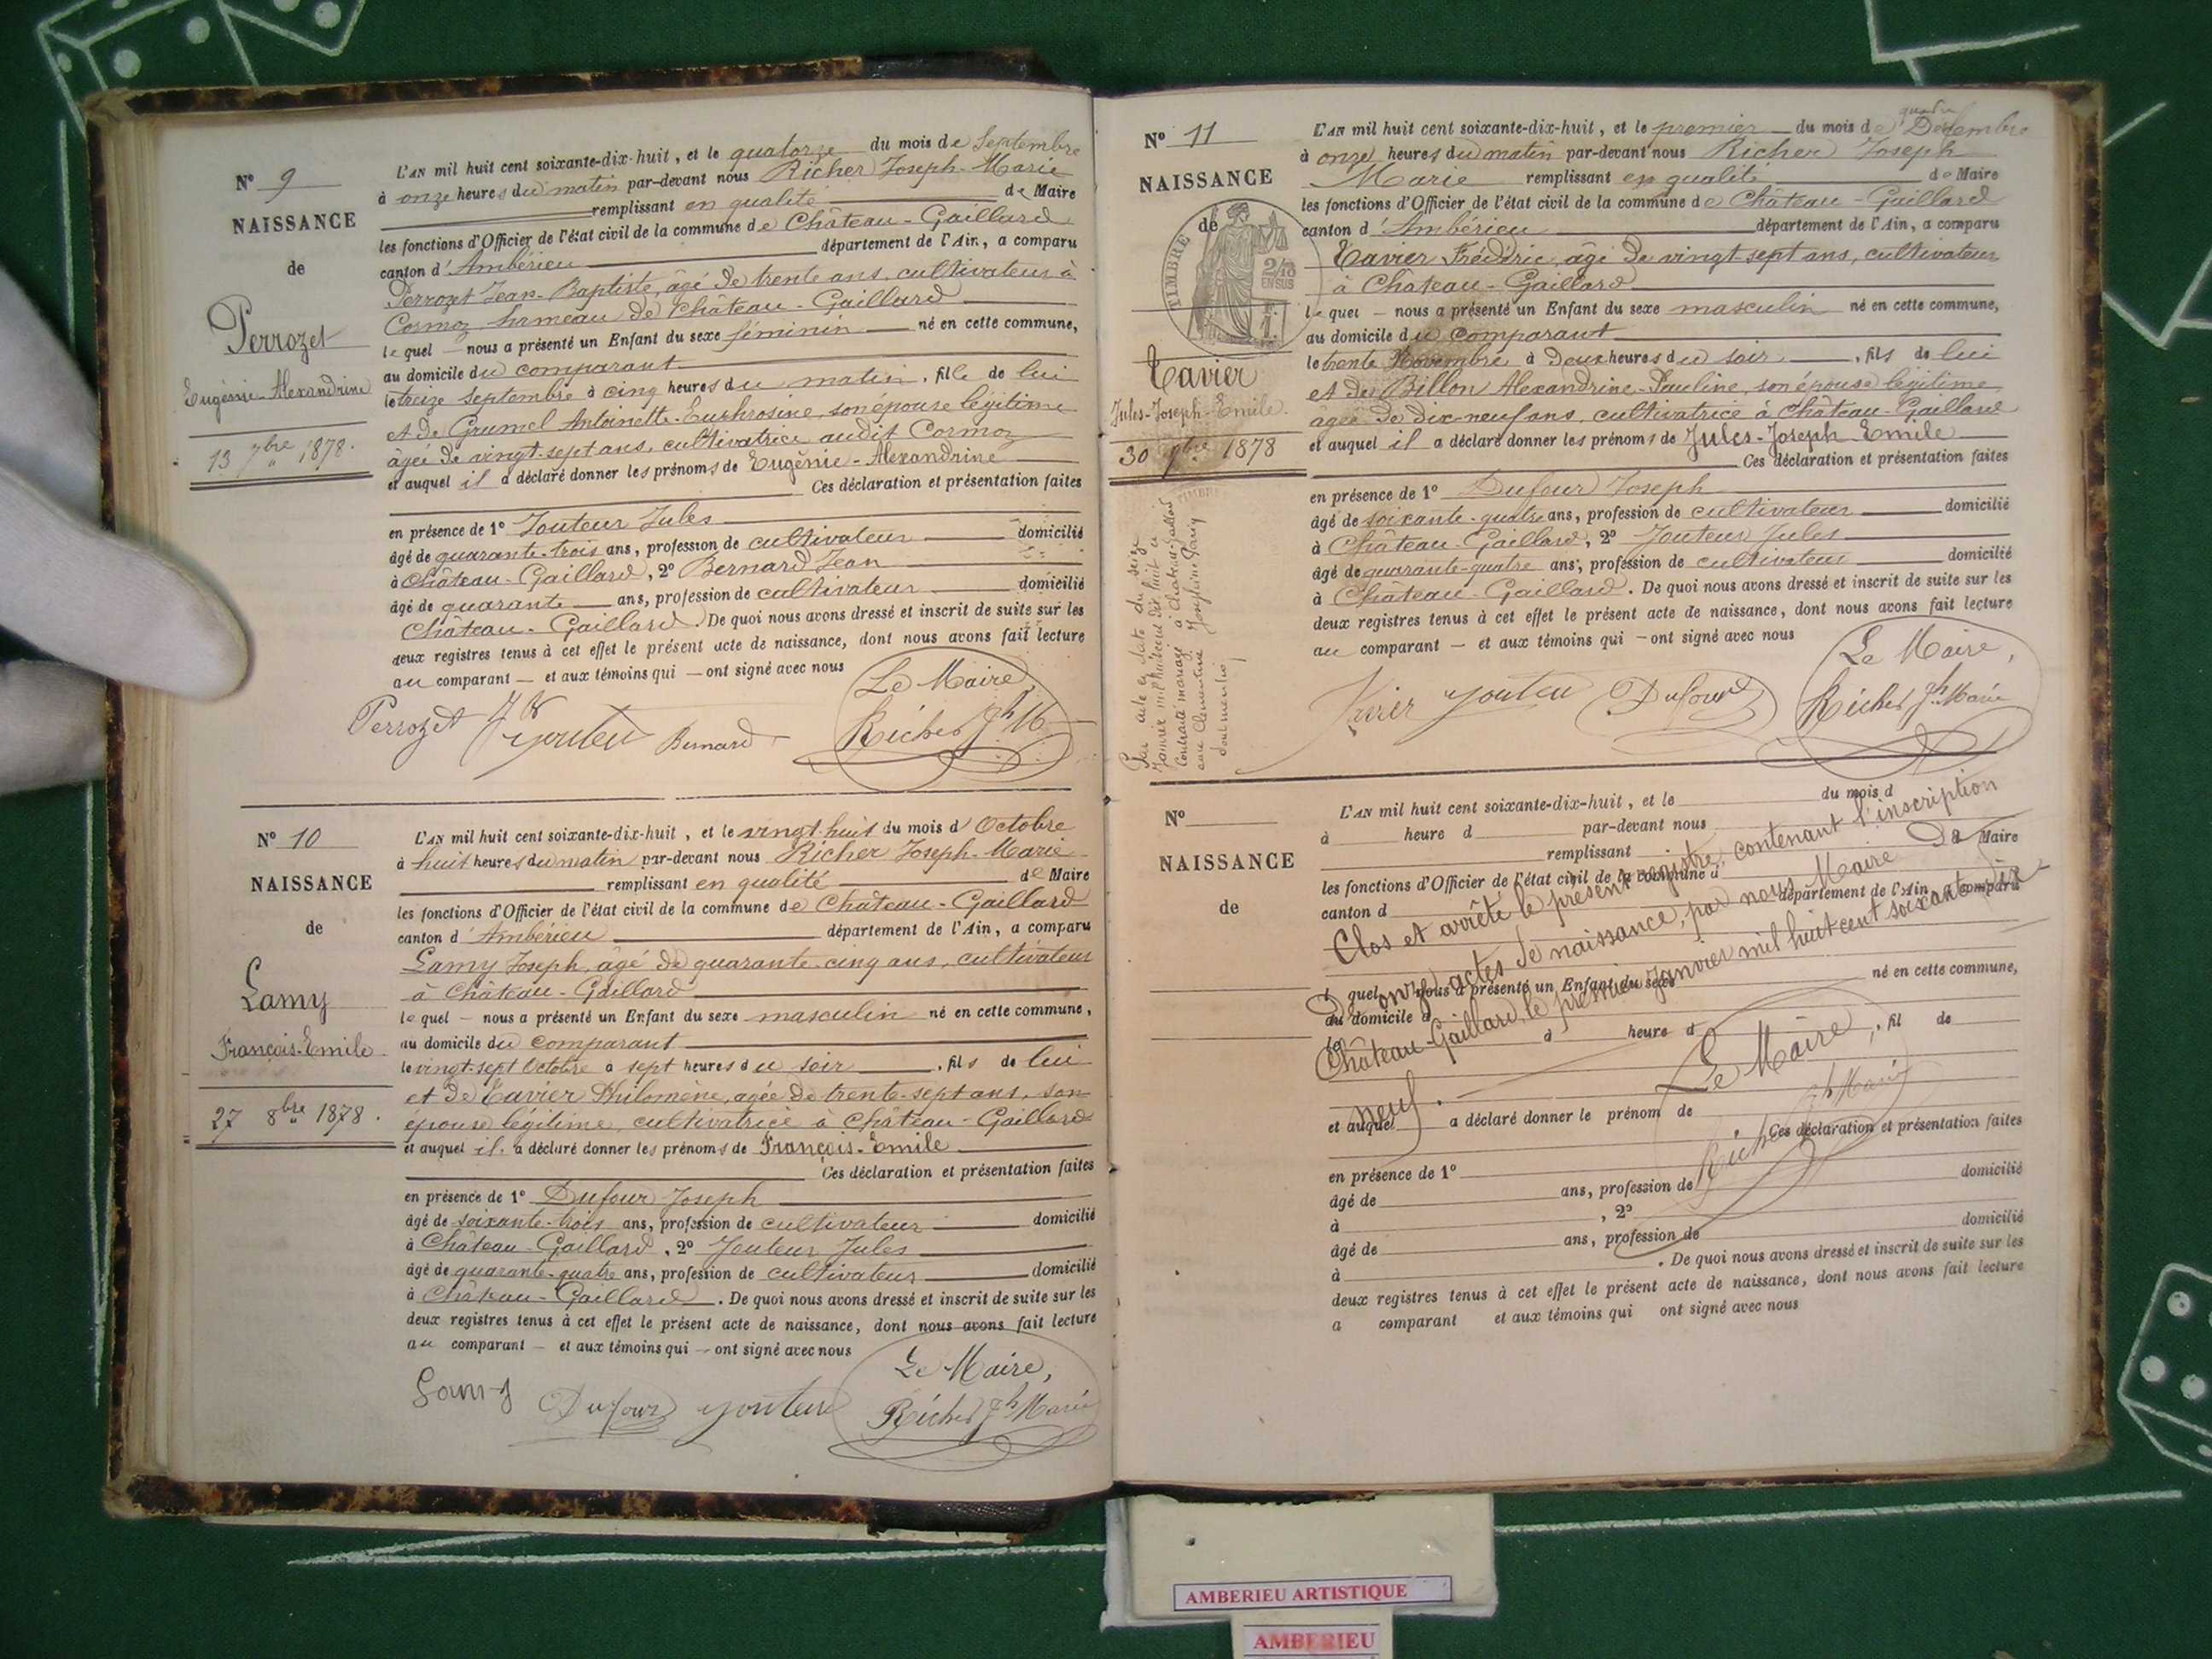 N° 9
NAISSANCE
de
Perrozet
Eugénie-Alexandrine
13 7bre 1878.
L'AN mil huit cent soixante-dix-huit, et le quatorze du mois de Septembre
à onze heures du matin par-devant nous Richer Joseph-Marie
remplissant en qualité de Maire
les fonctions d'Officier de l'état civil de la commune de Château-Gaillard
canton d'Ambérieu département de l'Ain, a comparu
Perrozet Jean-Baptiste, âgé de trente ans, cultivateur à
Cormoz, hameau de Château-Gaillard
lequel — nous a présenté un Enfant du sexe féminin né en cette commune,
au domicile du comparant
le treize Septembre à cinq heures du matin, fille de lui
et de Grumel Antoinette-Euphrosine, son épouse légitime
âgée de vingt-sept ans, cultivatrice audit Cormoz
et auquel il a déclaré donner les prénoms de Eugénie-Alexandrine
Ces déclaration et présentation faites
en présence de 1° Jouteur Jules
âgé de quarante-trois ans, profession de cultivateur domicilié
à Château-Gaillard, 2° Bernard Jean
âgé de quarante ans, profession de cultivateur domicilié
Château-Gaillard. De quoi nous avons dressé et inscrit de suite sur les
deux registres tenus à cet effet le présent acte de naissance, dont nous avons fait lecture
au comparant — et aux témoins qui — ont signé avec nous
Le Maire
Perrozet Jouteur Bernard Richer Jh M
N° 10
NAISSANCE
de
Lamy
François-Emile
27 8bre 1878.
L'AN mil huit cent soixante-dix-huit, et le vingt-huit du mois d'Octobre
à huit heures du matin par-devant nous Richer Joseph-Marie
remplissant en qualité de Maire
les fonctions d'Officier de l'état civil de la commune de Château-Gaillard
canton d'Ambérieu département de l'Ain, a comparu
Lamy Joseph, âgé de quarante-cinq ans, cultivateur
à Château-Gaillard
lequel — nous a présenté un Enfant du sexe masculin né en cette commune,
au domicile du comparant
le vingt-sept Octobre à sept heures du soir, fils de lui
et de Tavier Philomène, agée de trente-sept ans, son
épouse légitime, cultivatrice à Château-Gaillard
et auquel il a déclaré donner les prénoms de François-Emile
Ces déclaration et présentation faites
en présence de 1° Dufour Joseph
âgé de soixante-trois ans, profession de cultivateur domicilié
à Château-Gaillard, 2° Jouteur Jules
âgé de quarante-quatre ans, profession de cultivateur domicilié
à Château-Gaillard. De quoi nous avons dressé et inscrit de suite sur les
deux registres tenus à cet effet le présent acte de naissance, dont nous avons fait lecture
au comparant — et aux témoins qui — ont signé avec nous
Le Maire,
Lamy Dufour Jouteur Richer Jh Marie
N° 11
NAISSANCE
de
TIMBRE
2/10
EN SUS
Tavier
Jules-Joseph-Emile.
30 9bre 1878
Par acte en date du seize
Janvier mil neuf cent dix huit a
Contracté mariage à Château-Gaillard
avec Clementine Josephine
dont mention
L'AN mil huit cent soixante-dix-huit, et le premier du mois de Décembre
à onze heures du matin par-devant nous Richer Joseph
Marie remplissant en qualité de Maire
les fonctions d'Officier de l'état civil de la commune de Château-Gaillard
canton d'Ambérieu département de l'Ain, a comparu
Tavier Frédéric, âgé de vingt-sept ans, cultivateur
à Château-Gaillard
lequel — nous a présenté un Enfant du sexe masculin né en cette commune,
au domicile du comparant
le trente Novembre à Deux heures du soir, fils de lui
et de Billon Alexandrine-Pauline, son épouse légitime
âgée de dix-neuf ans, cultivatrice à Château-Gaillard
et auquel il a déclaré donner les prénoms de Jules-Joseph-Emile
Ces déclaration et présentation faites
en présence de 1° Dufour Joseph
âgé de soixante-quatre ans, profession de cultivateur domicilié
à Château-Gaillard, 2° Jouteur Jules
âgé de quarante-quatre ans, profession de cultivateur domicilié
à Château-Gaillard. De quoi nous avons dressé et inscrit de suite sur les
deux registres tenus à cet effet le présent acte de naissance, dont nous avons fait lecture
au comparant — et aux témoins qui — ont signé avec nous
Le Maire,
Tavier Jouteu Dufour Richer Jh Marie
N°
NAISSANCE
de
L'AN mil huit cent soixante-dix-huit, et le du mois d
à heure d par-devant nous
remplissant Maire
les fonctions d'Officier de l'état civil de la commune d
canton d département de l'Ain, a comparu
l quel nous a présenté un Enfant du sexe né en cette commune,
au domicile d
le à heure d , fil de
et auquel a déclaré donner le prénom de
Ces déclaration et présentation faites
en présence de 1° domicilié
âgé de ans, profession de
à , 2° domicilié
âgé de ans, profession de
à . De quoi nous avons dressé et inscrit de suite sur les
deux registres tenus à cet effet le présent acte de naissance, dont nous avons fait lecture
a comparant et aux témoins qui ont signé avec nous
Clos et arrêté le présent registre, contenant l'inscription
De onze actes de naissance, par nous Maire De
Château-Gaillard, le premier Janvier mil huit cent soixante-dix
neuf.
Le Maire,
Richer Jh Marie
AMBERIEU ARTISTIQUE
AMBERIEU